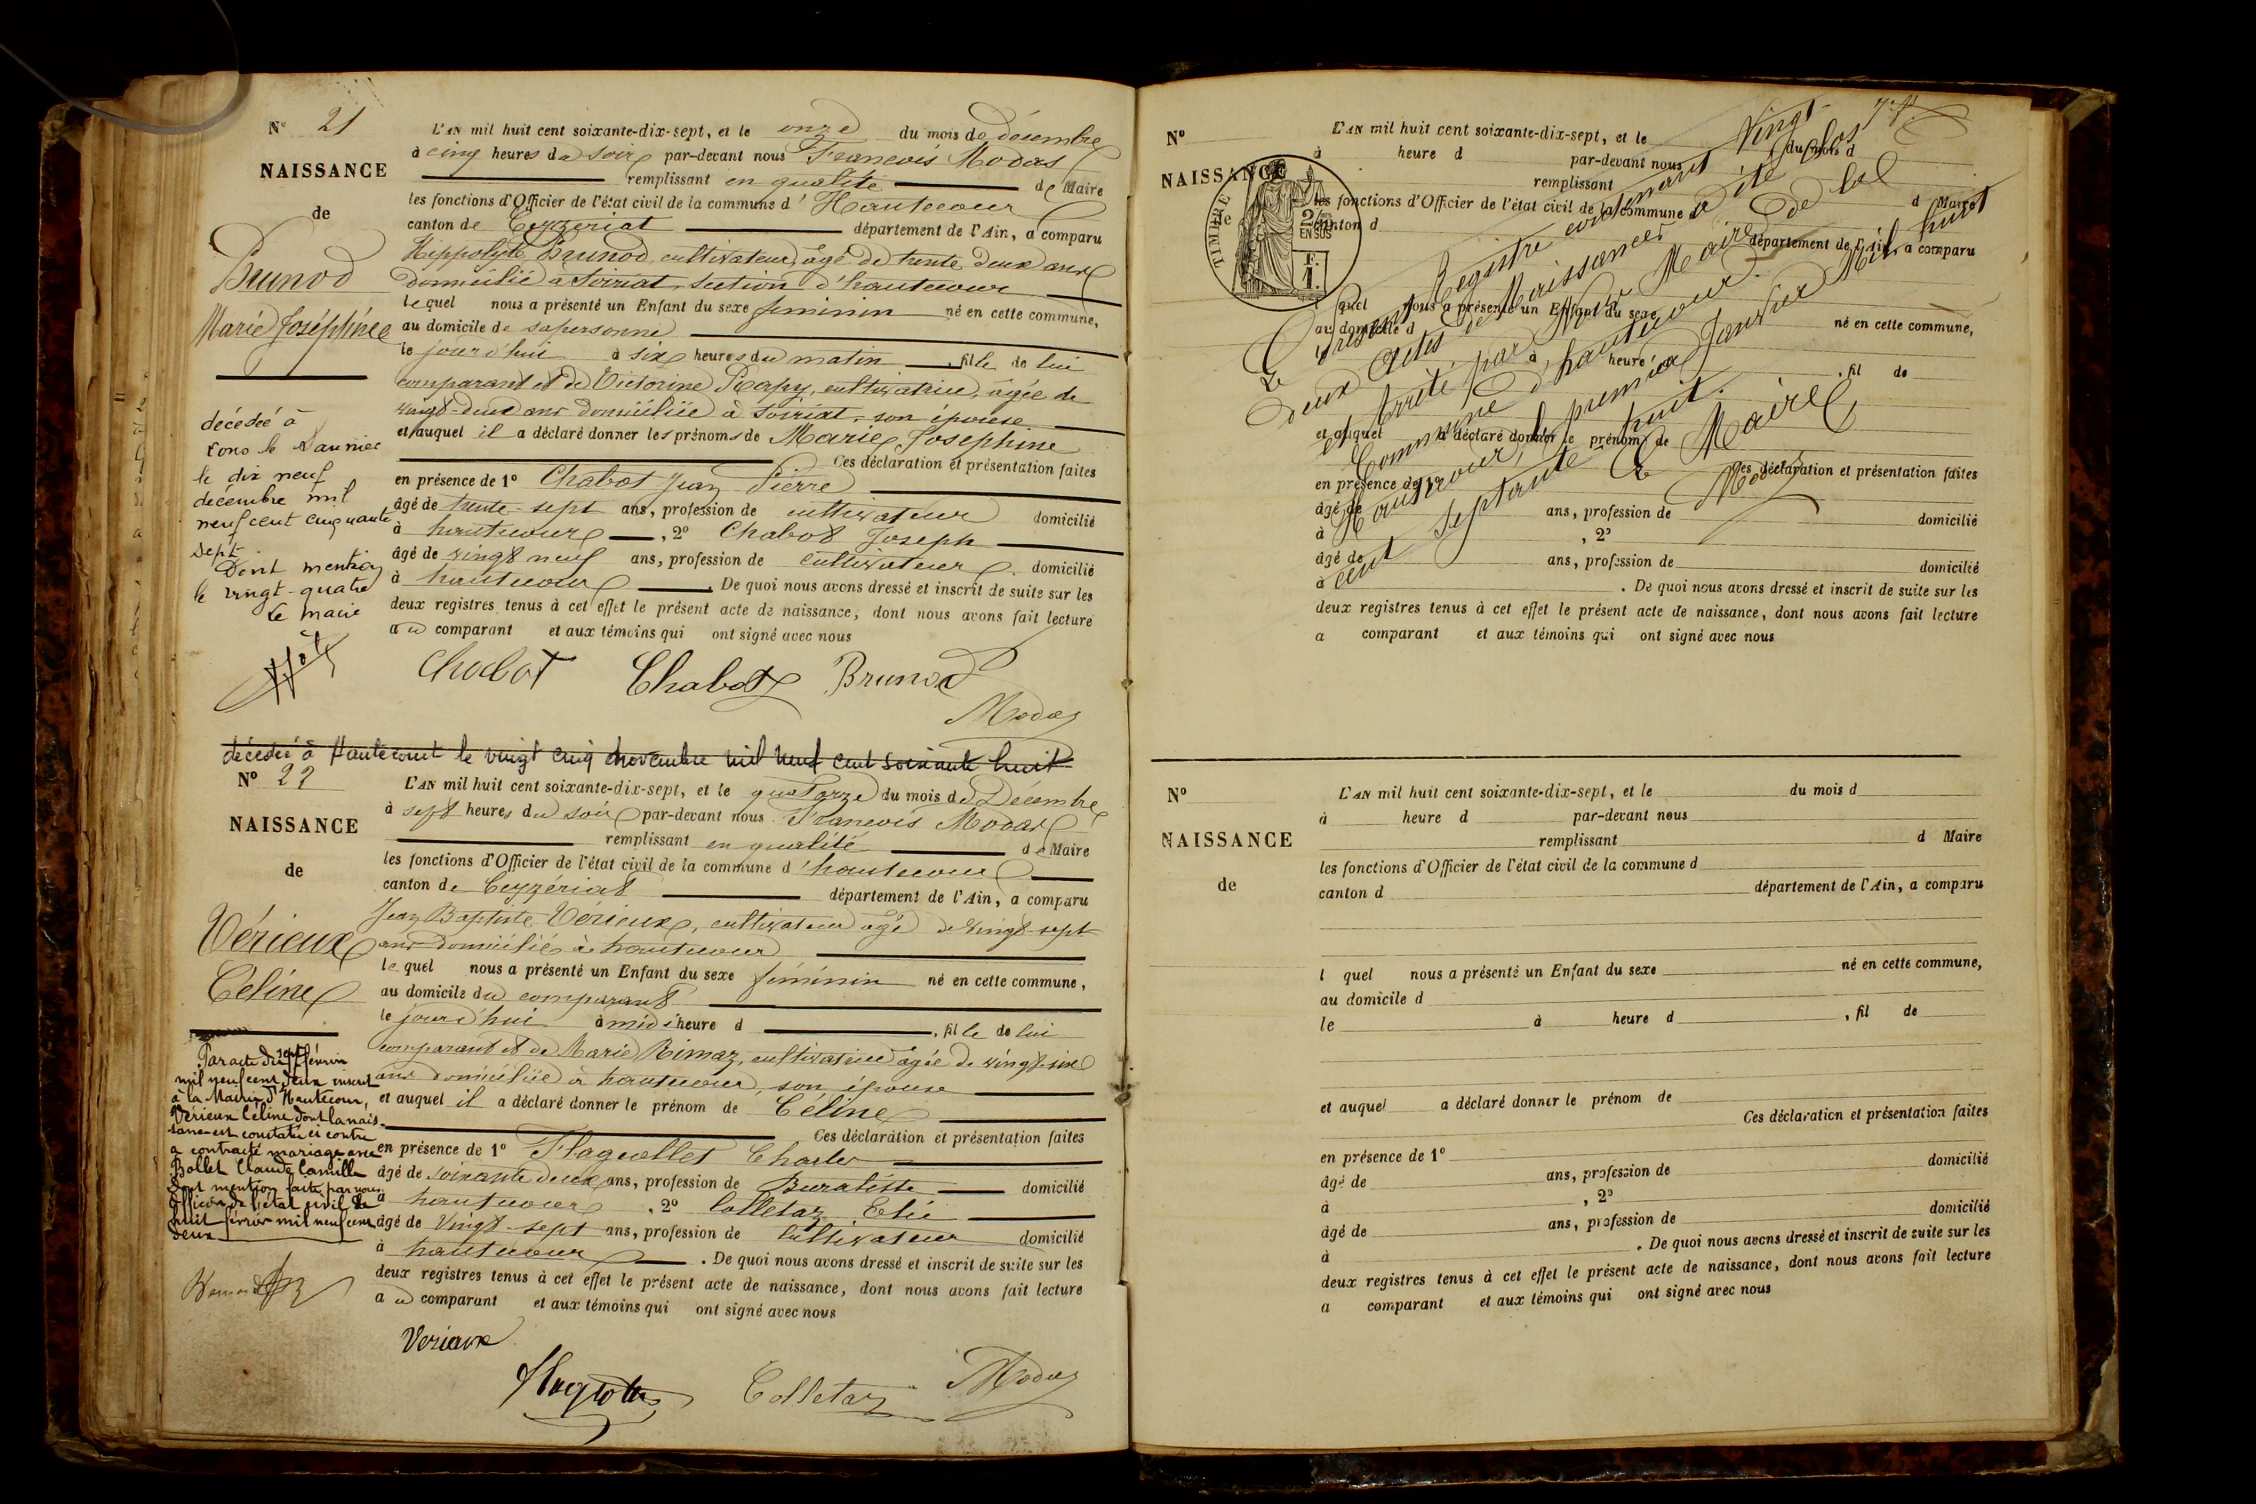 N° 21
NAISSANCE
de
Brunod
Marie Joséphine
décédée à
Lons le Saunier
le dix neuf
décembre mil
neuf cent cinquante
sept
Dont mention
le vingt-quatre
Le maire
L'AN mil huit cent soixante-dix-sept, et le onze du mois de décembre
à cinq heures du soir par-devant nous Francois Modas
remplissant en qualité de Maire
les fonctions d'Officier de l'état civil de la commune d'Hautecour
canton de Ceyzeriat département de l'Ain, a comparu
Hippolyte Brunod, cultivateur âgé de trente deux ans
domicilié à Soiriat, section d'hautecour
lequel nous a présenté un Enfant du sexe féminin né en cette commune,
au domicile de sa personne
le jourd'hui à six heures du matin, fille de lui
comparant et de Victorine Rapy, cultivatrice, âgée de
vingt-deux ans domiciliée à Soiriat, son épouse
et auquel il a déclaré donner les prénoms de Marie Joséphine
Ces déclaration et présentation faites
en présence de 1° Chabot Jean Pierre
âgé de trente-sept ans, profession de cultivateur domicilié
à hautecour, 2° Chabot Joseph
âgé de vingt neuf ans, profession de cultivateur domicilié
à hautecour. De quoi nous avons dressé et inscrit de suite sur les
deux registres tenus à cet effet le présent acte de naissance, dont nous avons fait lecture
au comparant et aux témoins qui ont signé avec nous
Chabot Chabot Brunod
Modas
décédée à Hautecourt le vingt cinq novembre mil neuf cent soixante huit
N° 22
NAISSANCE
de
Vérieux
Céline
Par acte du sept février
mil neuf cent deux inscrit
à la Mairie d'Hautecour,
Vérieux Céline dont la nais-
sance est constatée ci contre
a contracté mariage avec
Bollet Claude Camille
Dont mention faite par nous
officier de l'état civil le
huit février mil neuf cent
deux
L'AN mil huit cent soixante-dix-sept, et le quatorze du mois de Décembre
à sept heures du soir par-devant nous Francois Modas
remplissant en qualité de Maire
les fonctions d'Officier de l'état civil de la commune d'hautecour
canton de Ceyzériat département de l'Ain, a comparu
Jean Baptiste Vérieux, cultivateur âgé de vingt-sept
ans domicilié à hautecour
lequel nous a présenté un Enfant du sexe féminin né en cette commune,
au domicile du comparant
le jourd'hui à midi heure d, fille de lui
comparant et de Marie Rimaz, cultivatrice âgée de vingt-six
ans domiciliée à hautecour, son épouse
et auquel il a déclaré donner le prénom de Céline
Ces déclaration et présentation faites
en présence de 1° Flagcollet Charles
âgé de soixante deux ans, profession de Buraliste domicilié
à hautecour, 2° Colletaz Elie
âgé de Vingt-sept ans, profession de Cultivateur domicilié
à hautecour. De quoi nous avons dressé et inscrit de suite sur les
deux registres tenus à cet effet le présent acte de naissance, dont nous avons fait lecture
au comparant et aux témoins qui ont signé avec nous
Verieux
Colletaz Modas
N°
NAISSANCE
de
TIMBRE
2/10
EN SUS
F.
1.
L'AN mil huit cent soixante-dix-sept, et le du mois d
à heure d par-devant nous
remplissant d Maire
les fonctions d'Officier de l'état civil de la commune d
canton d département de l'Ain, a comparu
l quel nous a présenté un Enfant du sexe né en cette commune,
au domicile d
le à heure d, fil de
et auquel a déclaré donner le prénom de
Ces déclaration et présentation faites
en présence de 1°
âgé de ans, profession de domicilié
à , 2°
âgé de ans, profession de domicilié
à . De quoi nous avons dressé et inscrit de suite sur les
deux registres tenus à cet effet le présent acte de naissance, dont nous avons fait lecture
a comparant et aux témoins qui ont signé avec nous
Le présent Registre contenant Vingt
deux Actes de Naissances a été clos
et arrêté par Nous Maire de la
Commune d'hautecour.
Hautecour, le premier Janvier Mil huit
cent septante huit.
Le Maire
Modas
N°
NAISSANCE
de
L'AN mil huit cent soixante-dix-sept, et le du mois d
à heure d par-devant nous
remplissant d Maire
les fonctions d'Officier de l'état civil de la commune d
canton d département de l'Ain, a comparu
l quel nous a présenté un Enfant du sexe né en cette commune,
au domicile d
le à heure d, fil de
et auquel a déclaré donner le prénom de
Ces déclaration et présentation faites
en présence de 1°
âgé de ans, profession de domicilié
à , 2°
âgé de ans, profession de domicilié
à . De quoi nous avons dressé et inscrit de suite sur les
deux registres tenus à cet effet le présent acte de naissance, dont nous avons fait lecture
a comparant et aux témoins qui ont signé avec nous